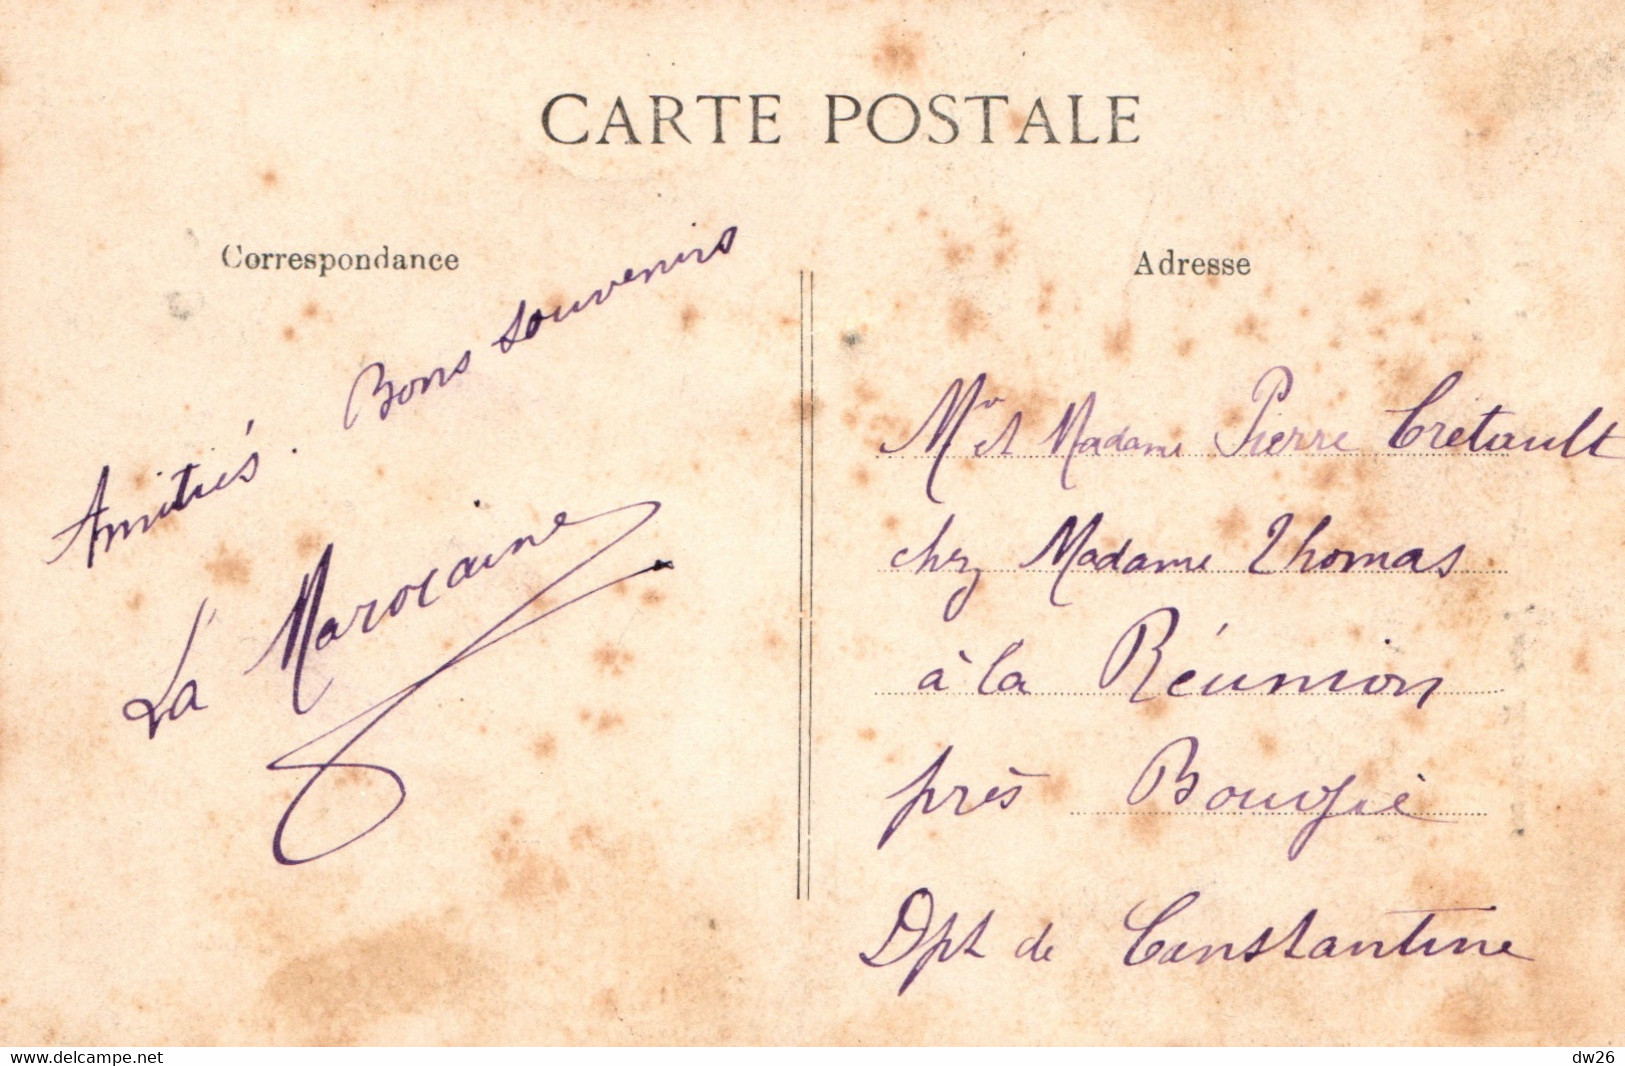 CARTE POSTALE
Correspondance
Amitiés. Bons souvenirs
La Marocaine
Adresse
Mr et Madame Pierre Cretault
chez Madame Thomas
à la Réunion
près Bougie
Dpt de Constantine
www.delcampe.net
dw26